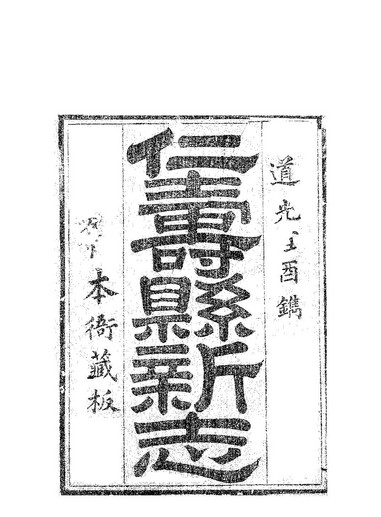 道光酉鐫
仁壽縣新志
本衙藏板